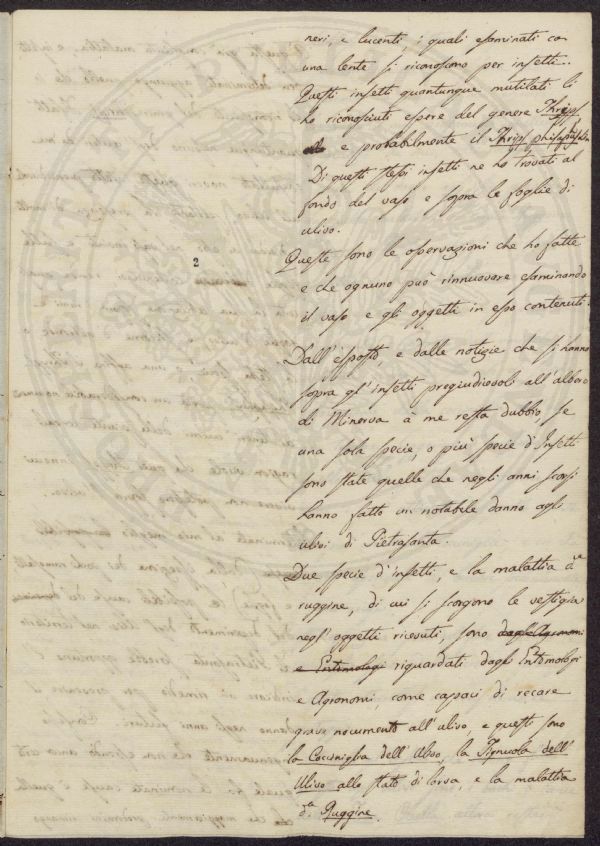 neri, e lucenti, i quali esaminati con
una lente si riconoscono per insetti.
Questi insetti quantunque mutilati li
ho riconosciuti essere del genere Thrips
e probabilmente il Thrips
Di questi stessi insetti ne ho trovati al
fondo del vaso e sopra le foglie di
ulivo.
2
Queste sono le osservazioni che ho fatte
e che ognuno può rinnuovare esaminando
il vaso e gli oggetti in esso contenuti.
Dall'esposto, e dalle notizie che si hanno
sopra gl'insetti pregiudiciosoli all'albero
di Minerva à me resta dubbio se
una sola specie, o più specie d'Insetti
sono state quelle che negli anni scorsi
hanno fatto un notabile danno agli
ulivi di Pietrasanta.
Due specie d'insetti, e la malattia d.a
ruggine, di cui si scorgono le vestigia
negl'oggetti ricevuti, sono dagli Agronomi
e Entomologi riguardati dagli Entomologi
e Agronomi, come capaci di recare
grave nocumento all'ulivo, e questi sono
la Cocciniglia dell'Ulivo, la Tignuola dell'
Ulivo allo stato di larva, e la malattia
d.a Ruggine.